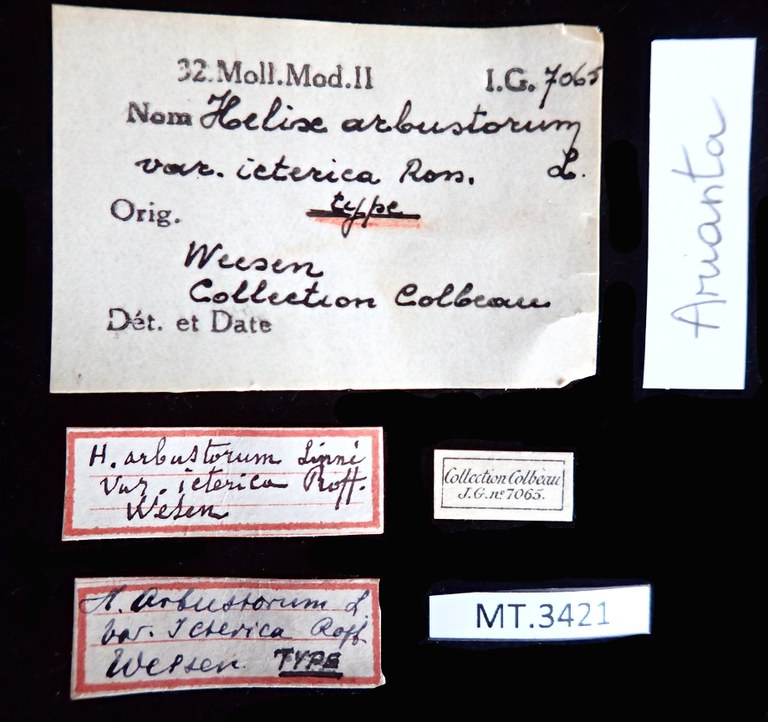 32.Moll.Mod.II I.G. 7065
Nom Helix arbustorum
var. icterica Ross. L.
type
Orig.
Weesen
Collection Colbeau
Dét. et Date
Arianta
H. arbustorum Linné
Var. icterica Roff.
Wesen
Collection Colbeau
I.G. nº 7065.
H. Arbustorum L.
Var. Icterica Roff.
Weesen TYPE
MT.3421